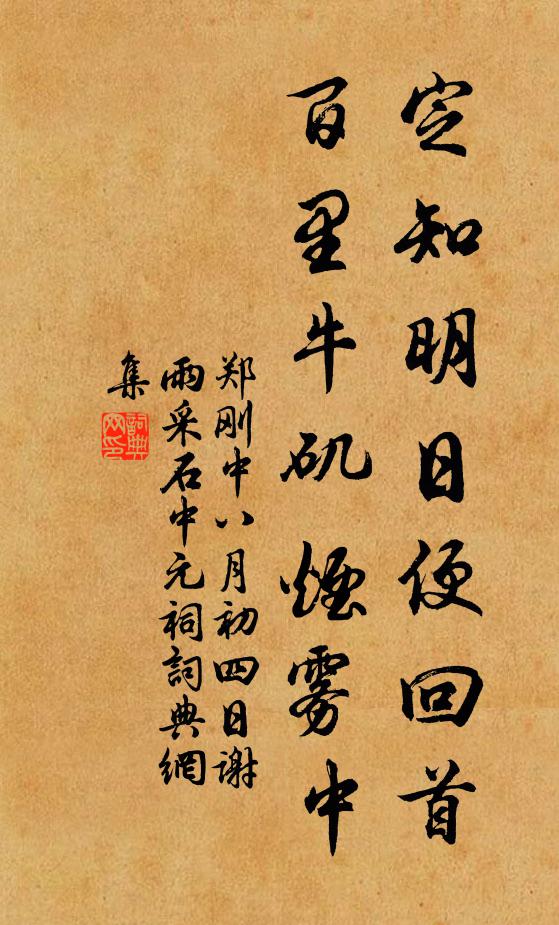 定知明日便回首
百里牛矶煙雾中
郑刚中八月初四日谢
雨采石中元祠詞典網
集
詞典網印